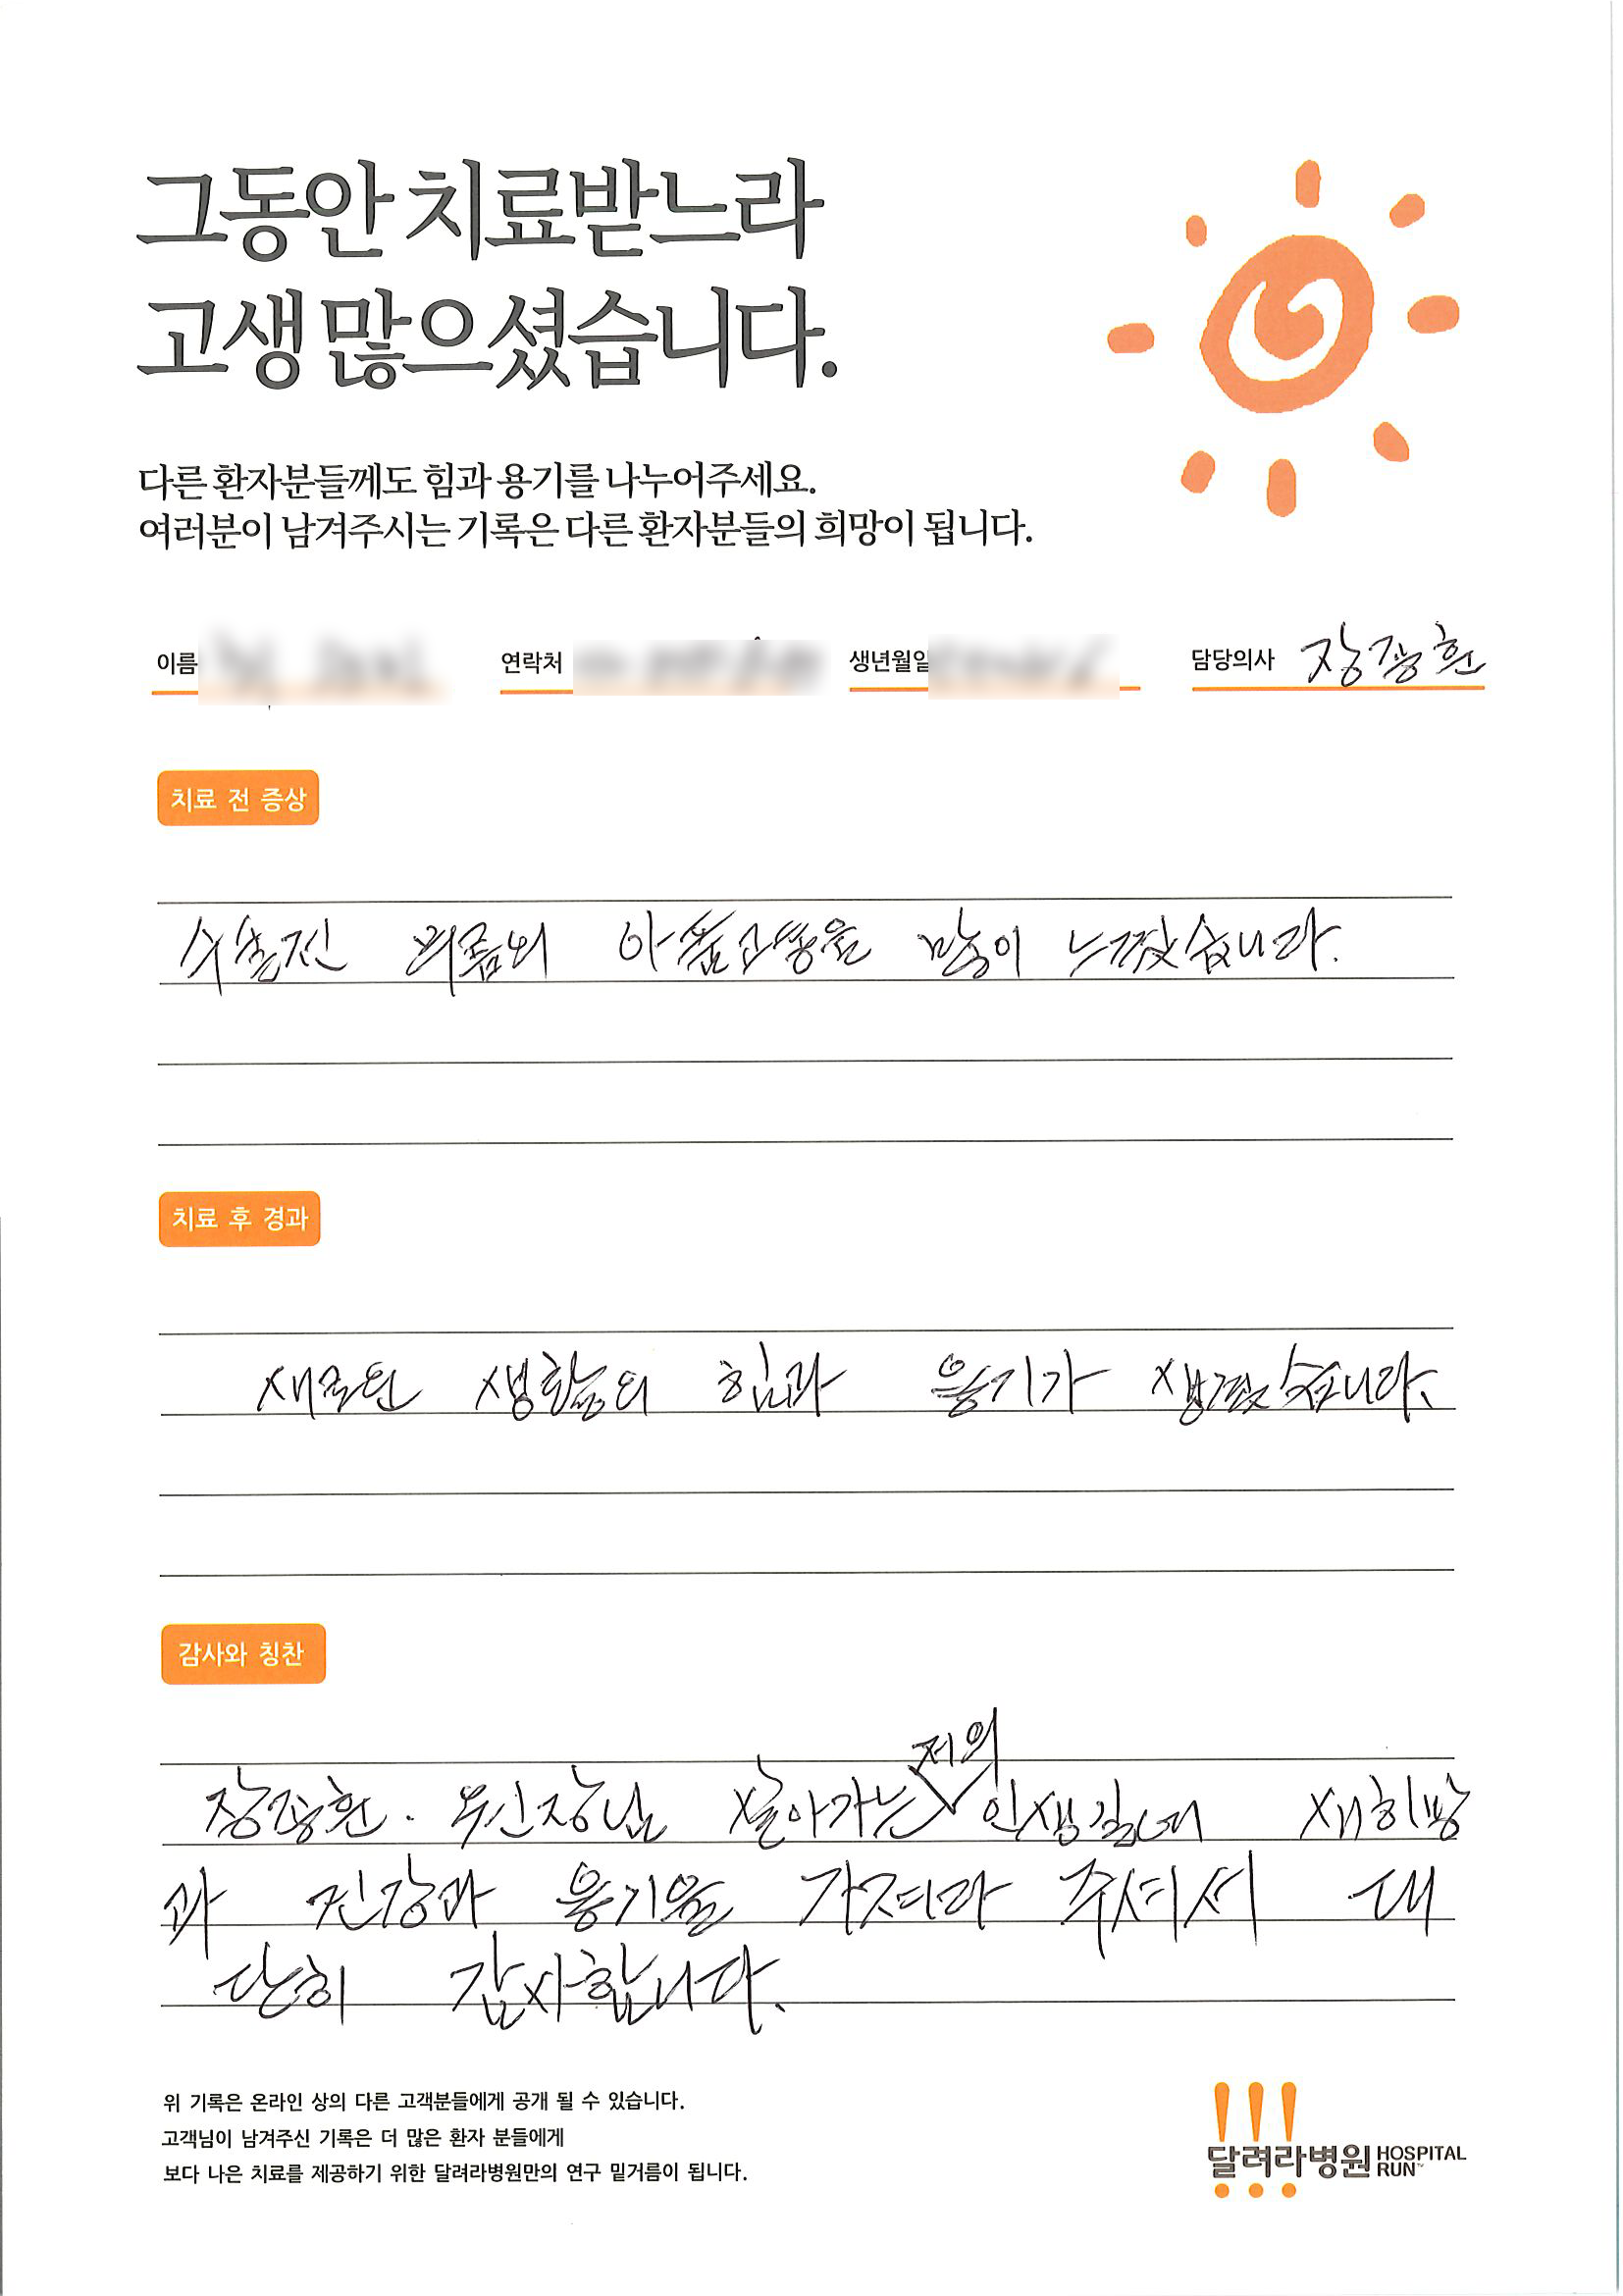 그동안 치료받느라
고생 많으셨습니다.
다른 환자분들께도 힘과 용기를 나누어주세요.
여러분이 남겨주시는 기록은 다른 환자분들의 희망이 됩니다.
이름 연락처 생년월일 담당의사 장광환
치료 전 증상
아픔고통을 많이 느꼈습니다.
치료 후 경과
새로운 생활의 힘과 용기가 생겼습니다.
감사와 칭찬
저의
살아가는 인생길에 새희망
과 건강과 용기을 가져다 주셔서 대
단히 감사합니다.
위 기록은 온라인 상의 다른 고객분들에게 공개 될 수 있습니다.
고객님이 남겨주신 기록은 더 많은 환자 분들에게
보다 나은 치료를 제공하기 위한 달려라병원만의 연구 밑거름이 됩니다.
!!!
달려라병원 HOSPITAL RUN™